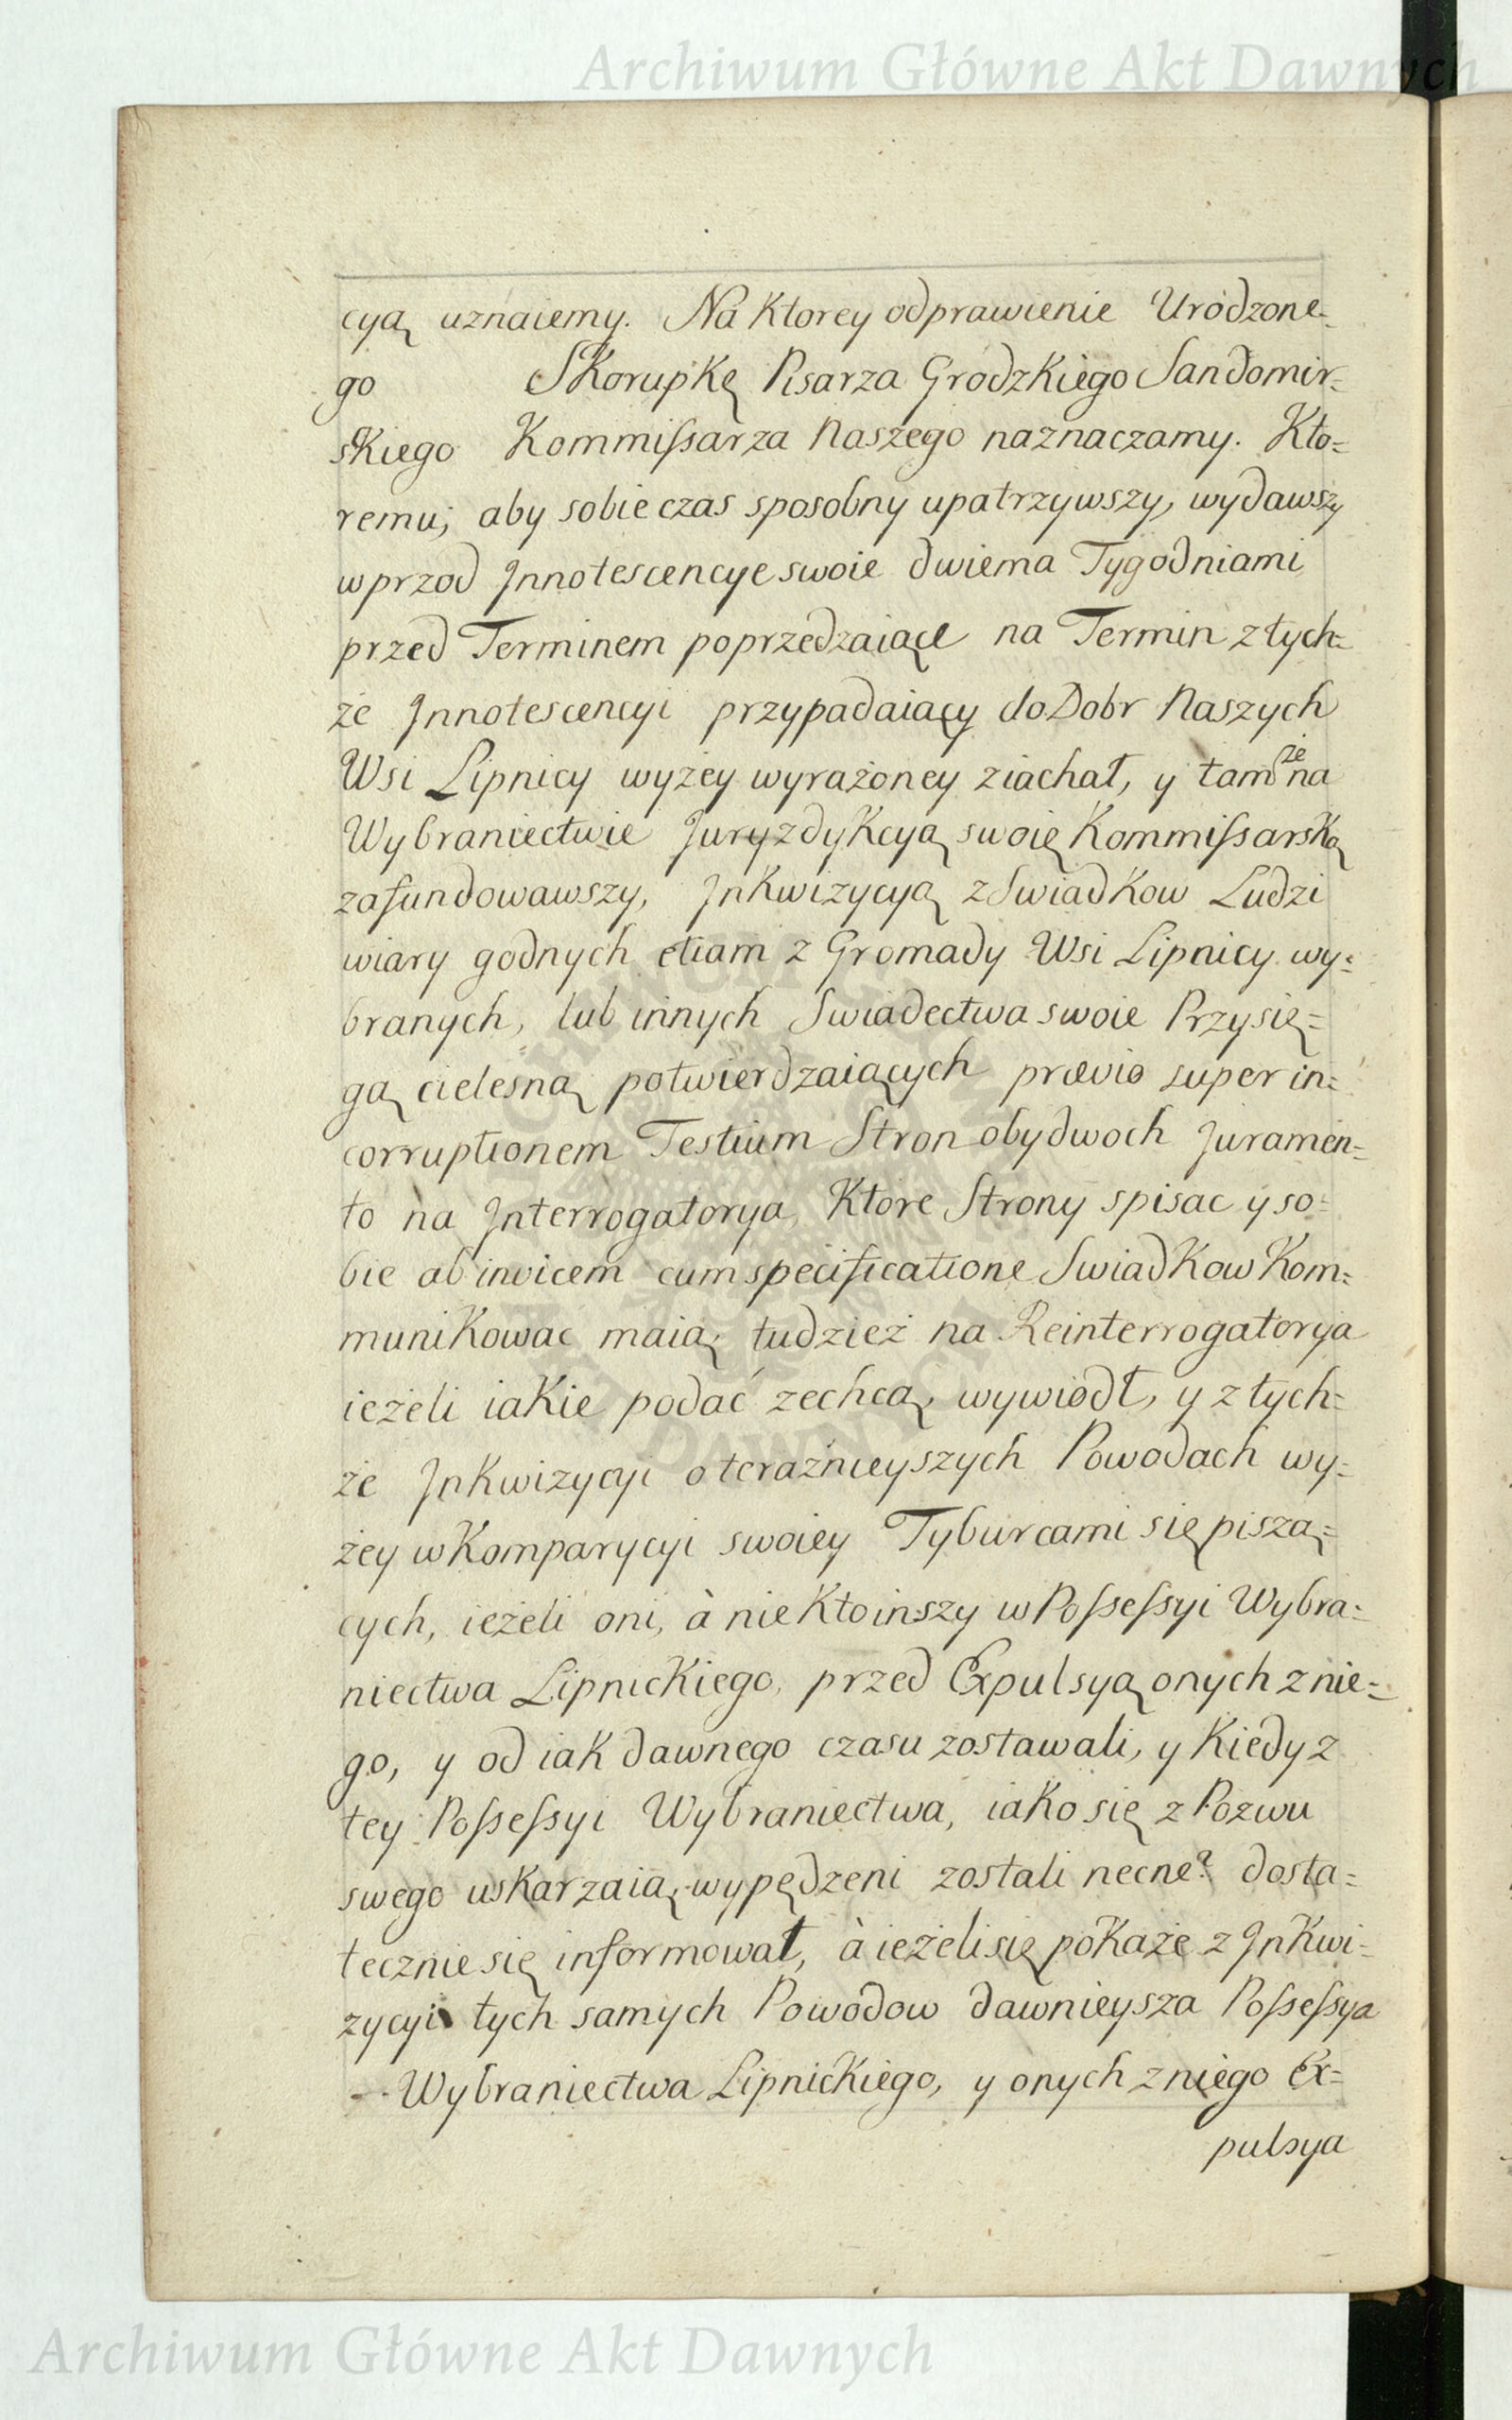 Archiwum Główne Akt Dawnych
cyą uznaiemy. Na Ktorey odprawienie Urodzone=
go Skorupkę Pisarza Grodzkiego Sandomir=
skiego Kommissarza Naszego naznaczamy. Kto=
remu, aby sobie czas sposobny upatrzywszy, wydawszy
wprzod Jnnotescencye swoie dwiema Tygodniami
przed Terminem poprzedzaiące na Termin z tych=
że Jnnotescencyi przypadaiący do Dobr Naszych
Wsi Lipnicy wyżey wyrażoney ziachał, y tamże na
Wybraniectwie Juryzdykcyą swoię Kommissarską
zafundowawszy, Jnkwizycyą z Swiadkow Ludzi
wiary godnych etiam z Gromady Wsi Lipnicy wy=
branych, lub innych Swiadectwa swoie Przysię=
gą cielesną potwierdzaiących prævio super in=
corruptionem Testium Stron obydwoch Juramen=
to na Jnterrogatorya, Ktore Strony spisac y so=
bie ab invicem cum specificatione Swiadkow Kom=
munikowac maią, tudzież na Reinterrogatorya
ieżeli iakie podać zechcą, wywiodł, y z tych=
że Jnkwizycyi o teraźnieyszych Powodach wy=
żey w Komparycyi swoiey Tyburcami się piszą=
cych, ieżeli oni, à nie Kto inszy w Possessyi Wybra=
niectwa Lipnickiego, przed Expulsyą onych z nie=
go, y od iak dawnego czasu zostawali, y Kiedy z
tey Possessyi Wybraniectwa, iako się z Pozwu
swego uskarzaią, wypędzeni zostali necne? dosta=
tecznie się informował, à ieżeli się pokaże z Jnkwi=
zycyi tych samych Powodow dawnieysza Possessya
Wybraniectwa Lipnickiego, y onych z niego Ex=
pulsya
Archiwum Główne Akt Dawnych